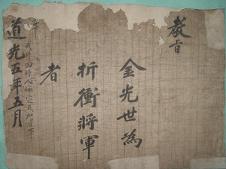 教旨
金光世為
折衝將軍
者
道光五年五月